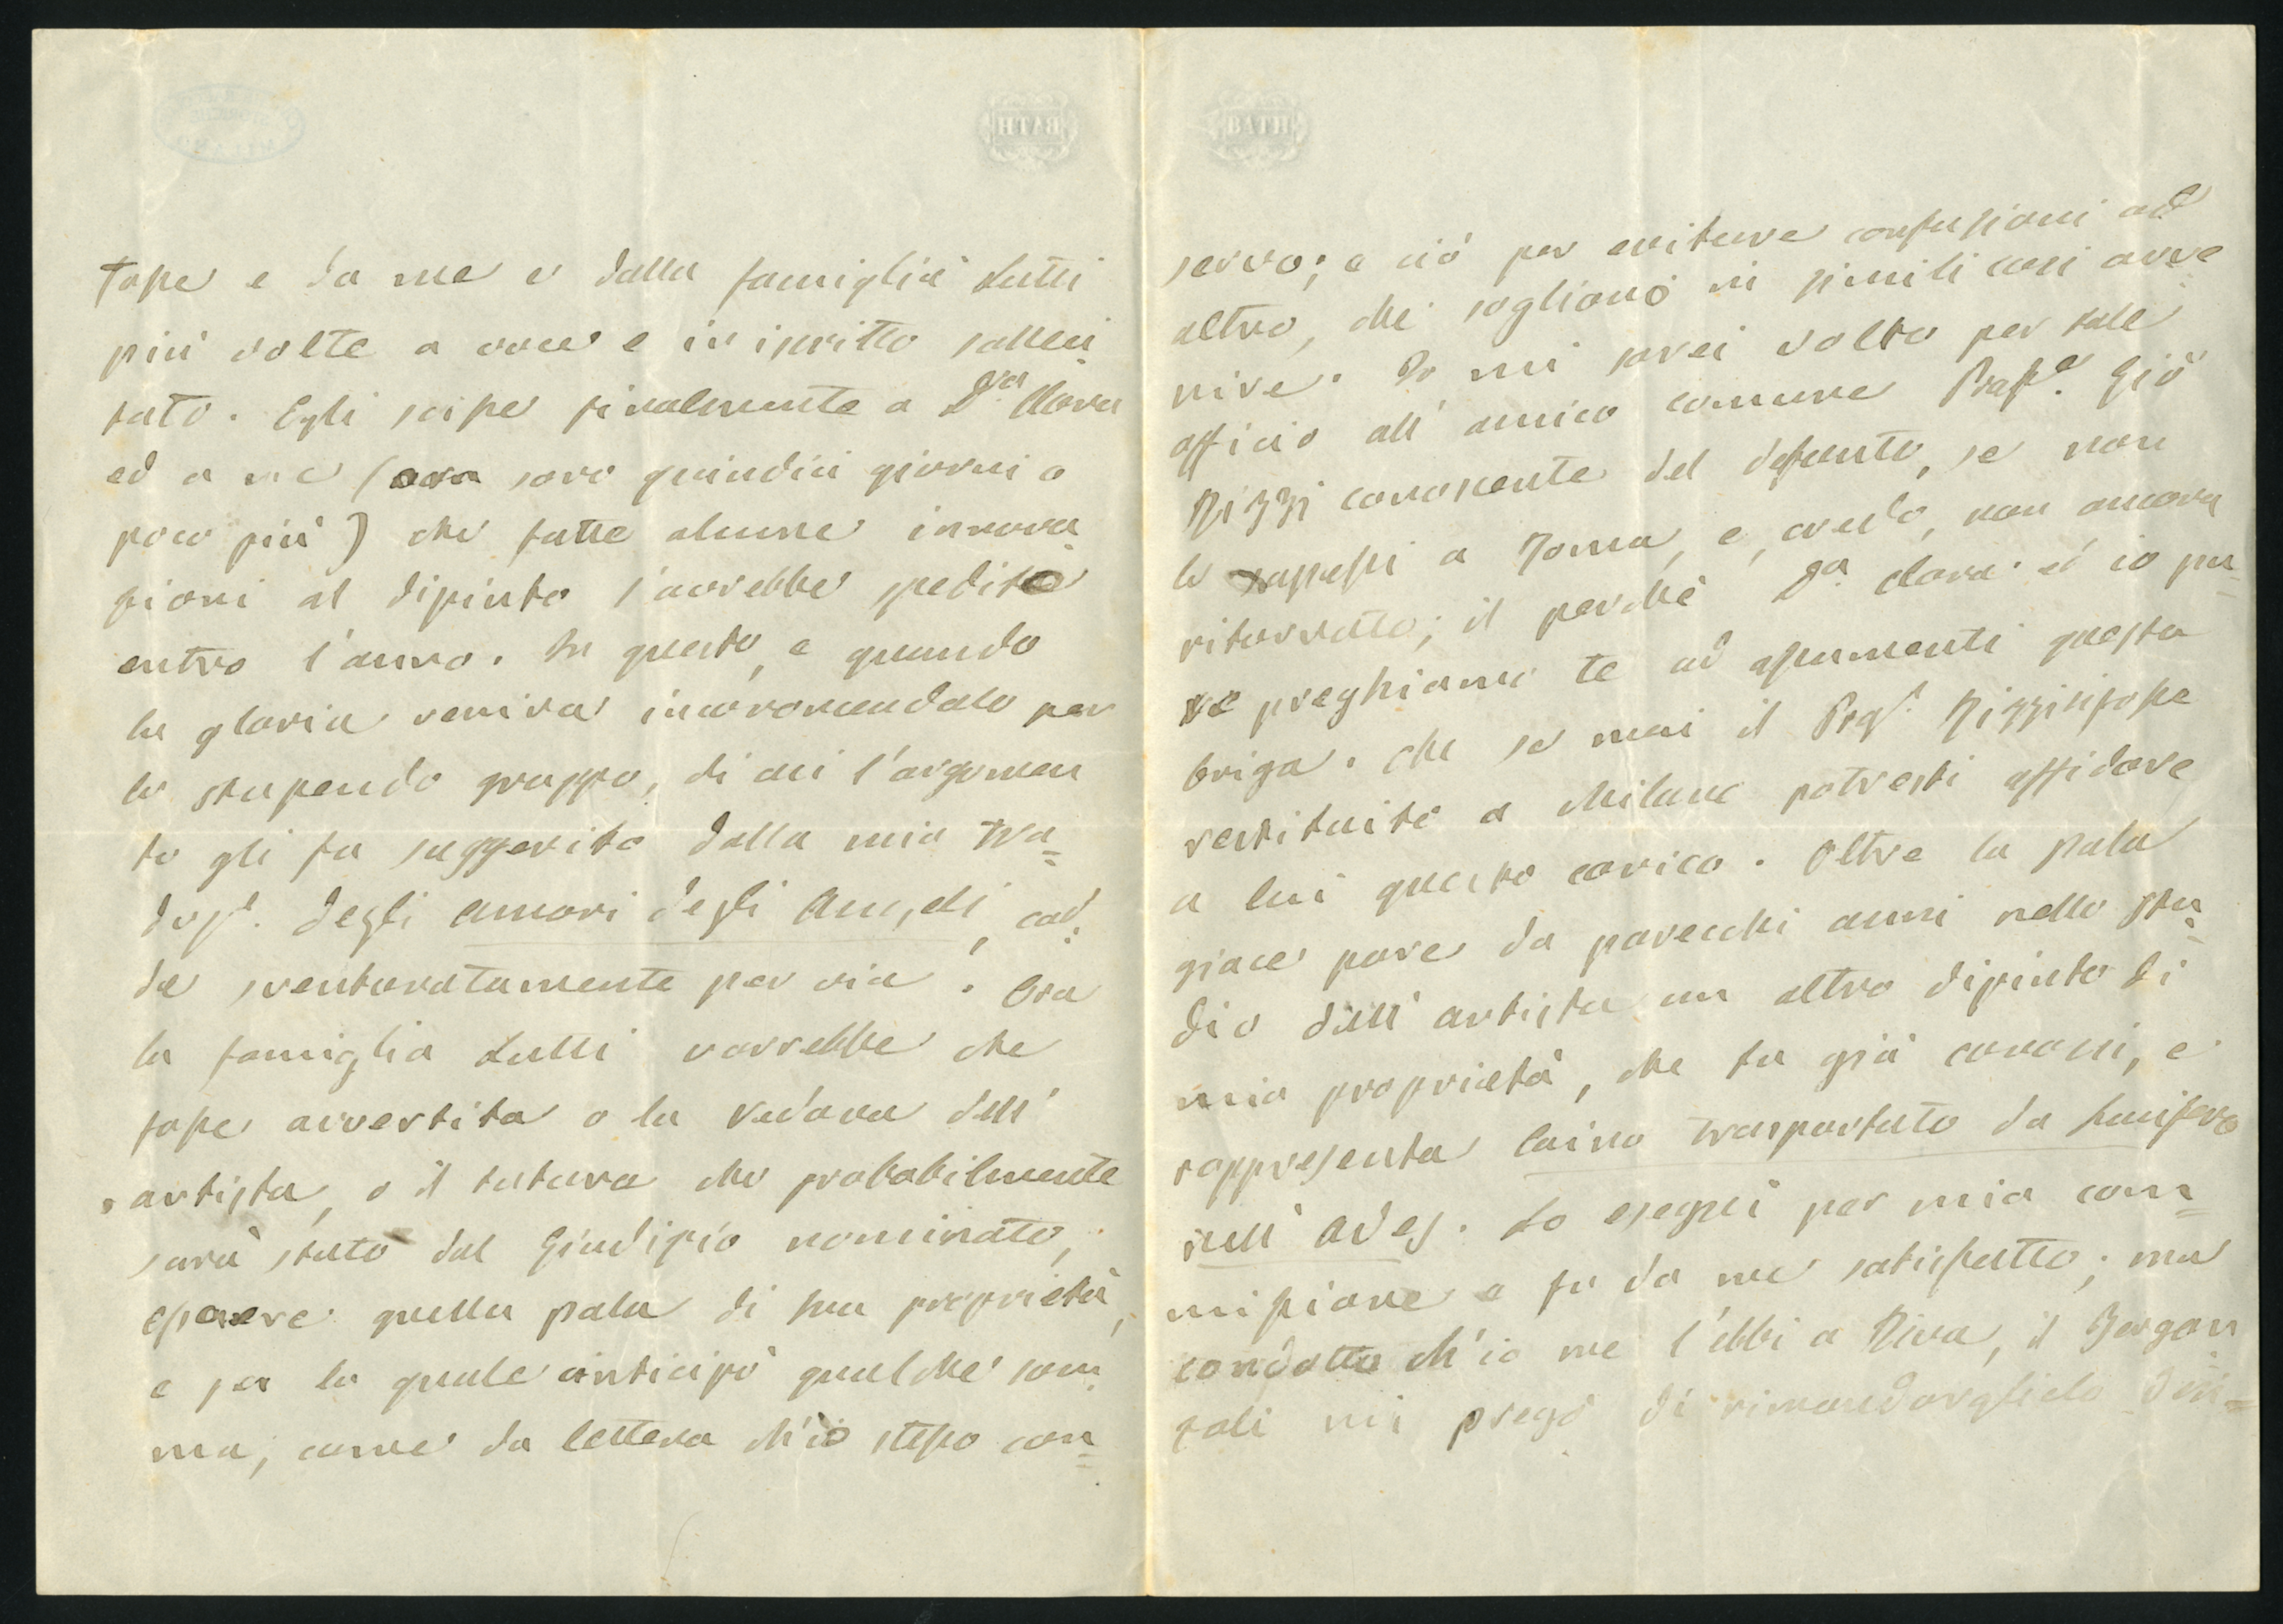 fosse e da me e dalla famiglia Lutti
più volte a voce e in iscritto solleci
tato. Egli scisse finalmente a D.na Clara
ed a me (ora sono quindici giorni o
poco più) che fatte alcune innova
zioni al dipinto l'avrebbe spedito
entro l'anno. In questo, e quando
la gloria veniva incoronandolo per
lo stupendo gruppo, di cui l'argomen
to gli fu suggerito dalla mia tra=
duz.e degli amori degli Angeli, cad=
de sventuratamente per via. Ora
la famiglia Lutti vorrebbe che
fosse avvertita o la vedova dell'
artista, o il tutore che probabilmente
sarà stato dal Giudizio nominato,
essere quella pala di sua proprietà,
e per la quale anticipò qualche som
ma, come da lettera ch'io stesso con=
servo; e ciò per evitare confusioni od
altro, che sogliono in simili casi avve
nire. Io mi sarei volto per tale
officio all'amico comune Prof.e Giō
Rizzi conoscente del defunto, se non
lo sapessi a Roma, e, credo, non ancora
ritornato; il perchè D.a Clara ed io pu=
re preghiamo te ad assumerti questa
briga. Che se mai il Prof. Rizzi si fosse
restituito a Milano potresti affidare
a lui questo carico. Oltre la pala
giace pure da parecchi anni nello stu=
dio dell'artista un altro dipinto di
mia proprietà, che tu già conosci, e
rappresenta Caino trasportato da Lucifero
nell'Ades. Lo eseguì per mia com=
missione e fu da me satisfatto; ma
condotto ch'io me l'ebbi a Riva, il Bergon
zoli mi pregò di rimandarglielo
BATH
BATH
MILANO